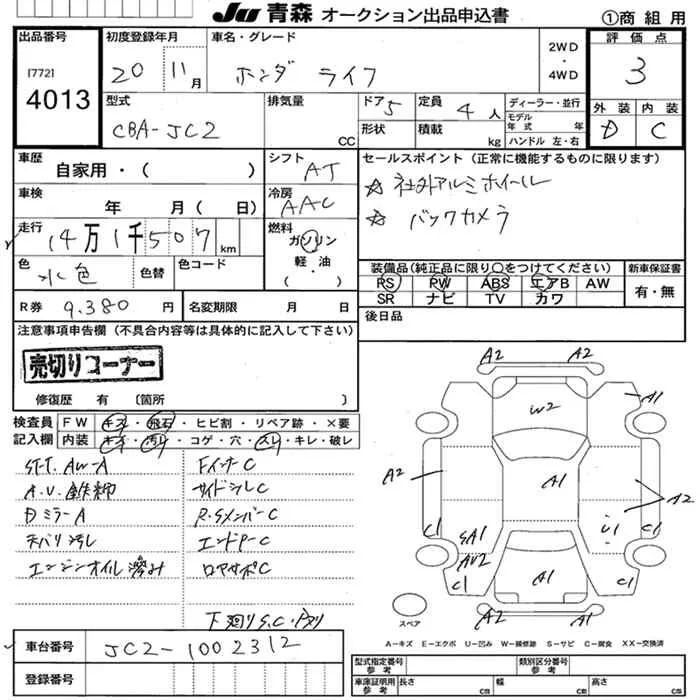 JU 青森 オークション出品申込書 ①商組用
出品番号 初度登録年月 車名・グレード 2WD・4WD 評価点
[772] 4013 20 11月 ホンダ ライフ 3
型式 排気量 ドア 5 定員 4人 ディーラー・並行 外装 内装
CBA-JC2 CC 形状 積載 kg モデル年式 年 ハンドル 左・右 D C
車歴 自家用・( ) シフト AT セールスポイント(正常に機能するものに限ります)
☆ 社外アルミホイール
車検 年 月( 日) 冷房 AAC ☆ バックカメラ
走行 14万1千507km 燃料 ガソリン 軽油 ( ・ )
色 水色 色替 色コード 装備品(純正品に限り○をつけてください) 新車保証書
PS PW ABS エアB AW 有・無
SR ナビ TV カワ
R券 9,380円 名変期限 月 日 後日品
注意事項申告欄(不具合内容等は具体的に記入して下さい)
売切りコーナー
修復歴 有 〔箇所 〕
検査員記入欄 FW キズ・飛石・ヒビ割・リペア跡・×要
内装 キズ・汚れ・コゲ・穴・スレ・キレ・破レ
ST.T. AW-A FインナーC
サイドシルC
DミラーA R.SメンバーC
天バリ汚レ
エンジンオイル滲み ロアサポC
下廻りS.C
車台番号 JC2-1002312
登録番号
A2 A2
W2 A1
A2 A1 A2
C1 SA1 U1 C1
AU2
C1 A1 C1
A2 A2
スペア
A-キズ E-エクボ U-凹み W-補修跡 S-サビ C-腐食 XX-交換済
型式指定番号 参考 類別区分番号 参考
車庫証明用 参考 長さ cm 幅 cm 高さ cm